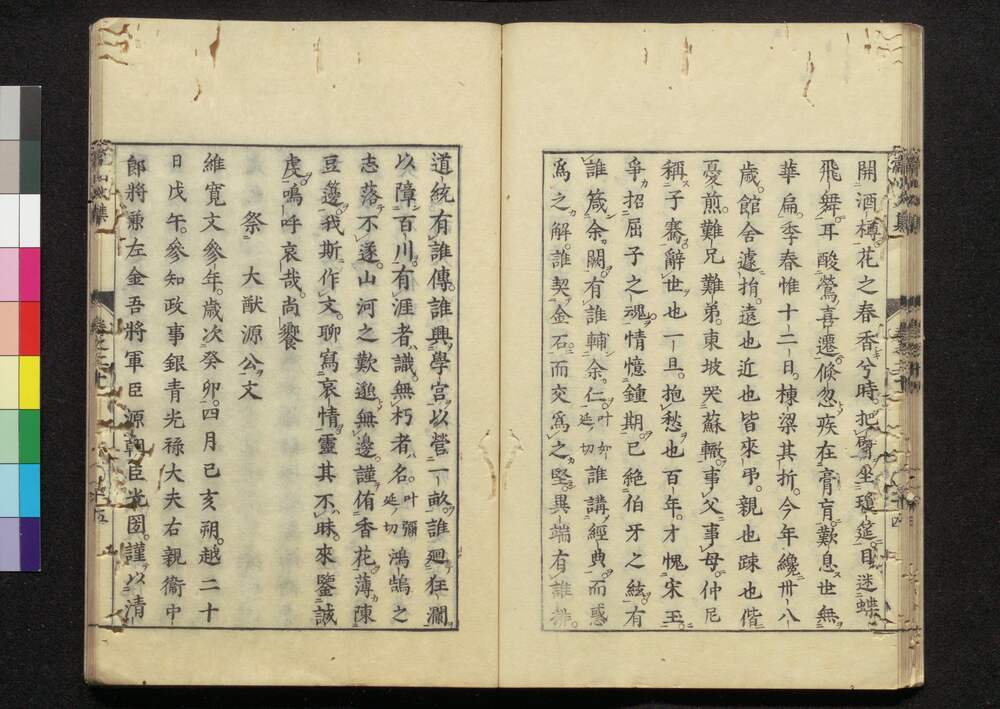 開酒樽花之春香兮時把臂坐瓊筵目迷蝶
飛舞耳酸鶯喜遷倏忽疾在膏肓歎息世無
華扁季春惟十二日棟梁其折今年纔卅八
歳館舍遽捐遠也近也皆來弔親也踈也偕
憂煎難兄難弟東坡哭蘇轍事父事母仲尼
稱子騫辭世也一旦抱愁也百年才愧宋玉
爭招屈子之魂情憶鍾期已絶伯牙之絃有
誰箴余闕有誰輔余仁叶如延切誰講經典而惑
爲之解誰契金石而交爲之堅異端有誰排
道統有誰傳誰興學宮以營一畝誰廻狂瀾
以障百川有涯者識無朽者名叶彌延切鴻鵠之
志落不遂山河之歎逝無邊謹侑香花薄陳
豆籩我斯作文聊寫哀情靈其不昧來鑒誠
虔嗚呼哀哉尚饗
祭大猷源公文
維寛文参年歳次癸卯四月己亥朔越二十
日戊午参知政事銀青光祿大夫右親衞中
郎將兼左金吾將軍臣源朝臣光圀謹以清